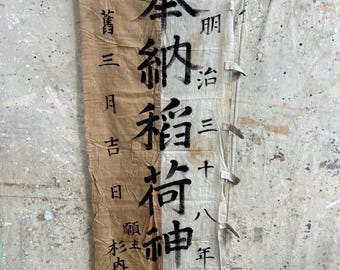 明治三十八年
奉納稲荷神
舊三月吉日
願主
杉内